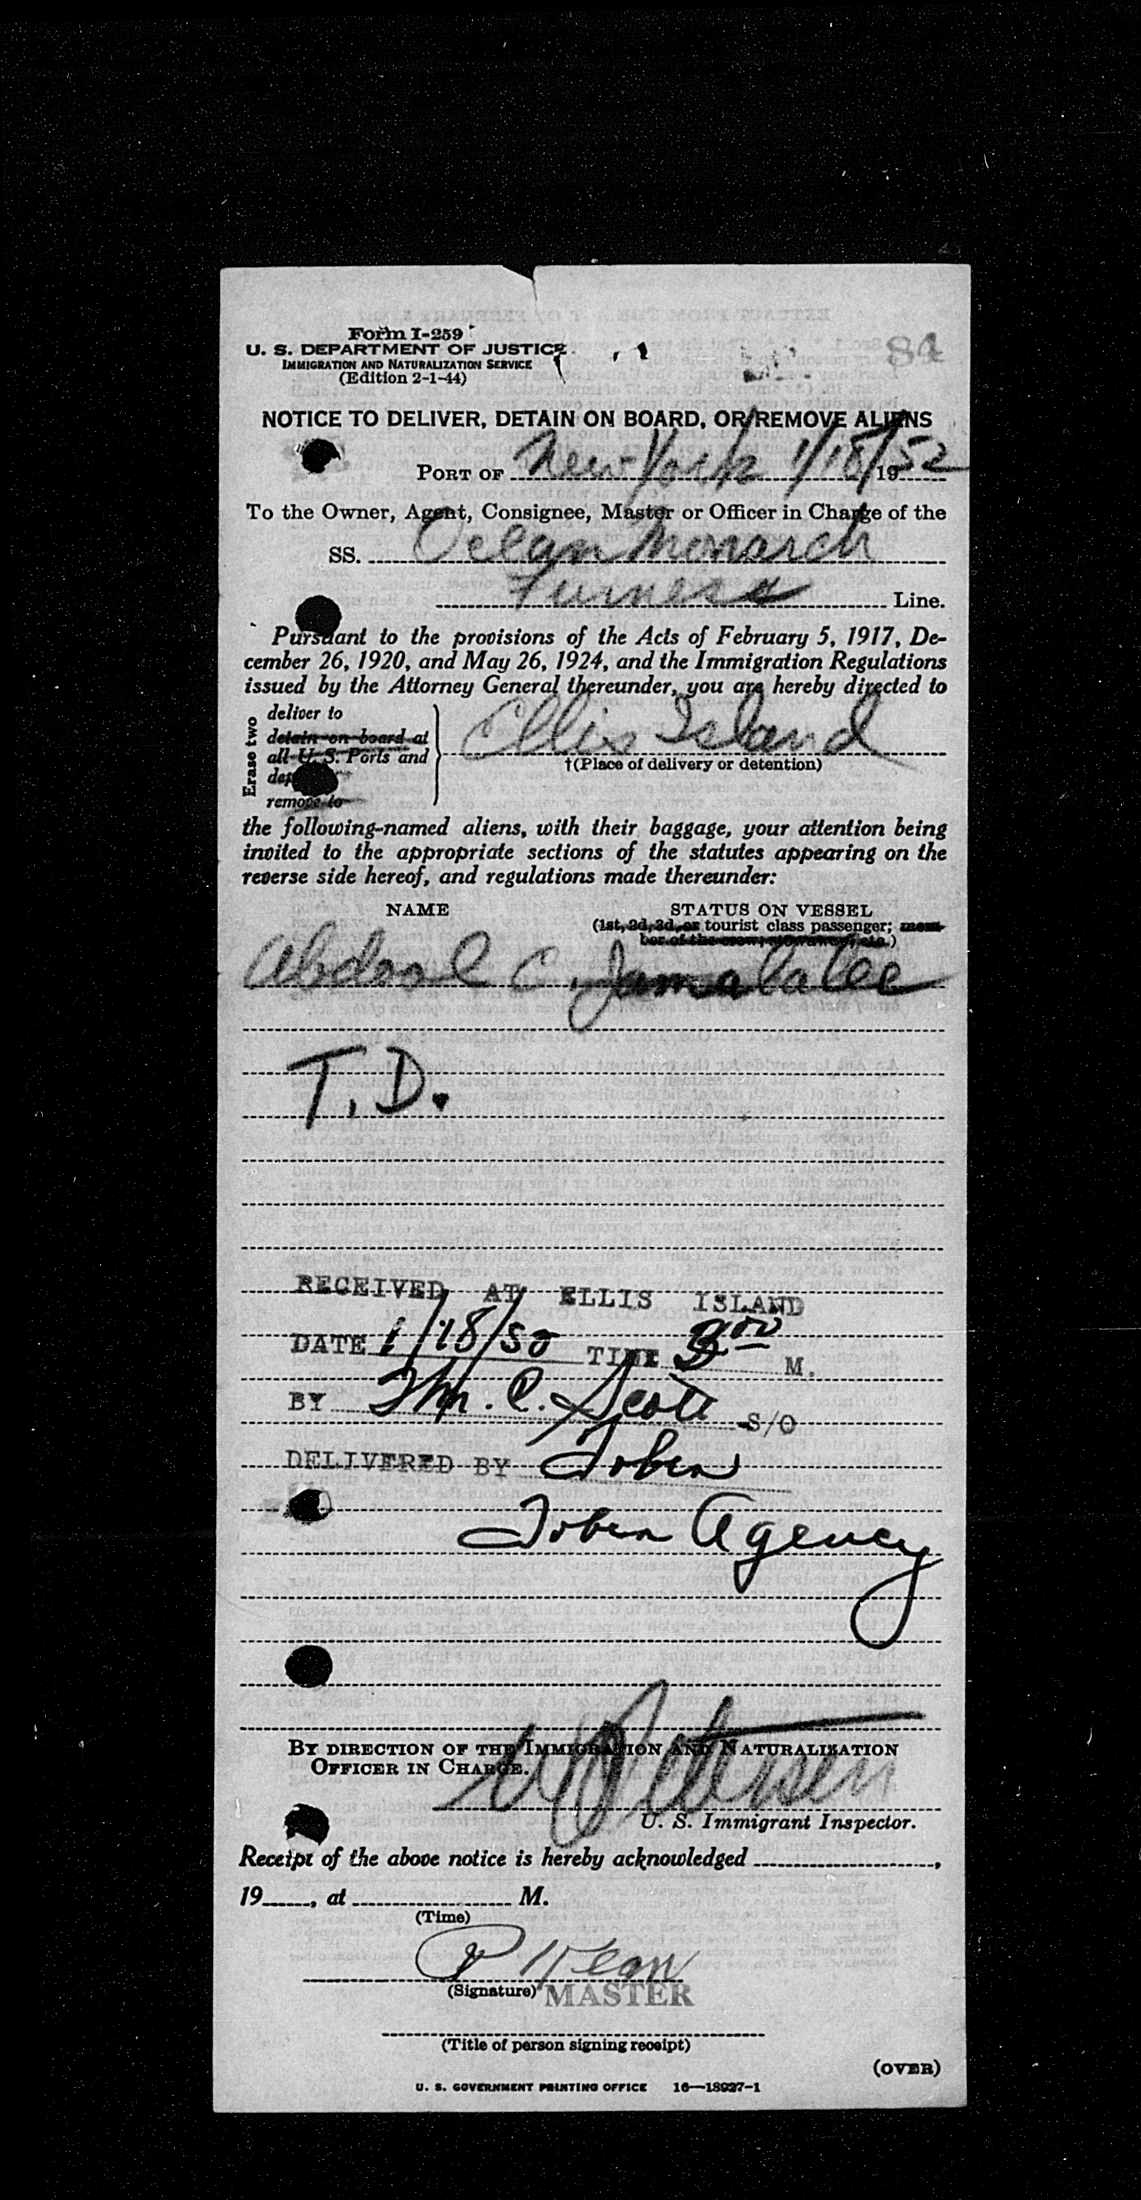 Form I-259
U. S. DEPARTMENT OF JUSTICE
84
IMMIGRATION AND NATURALIZATION SERVICE
(Edition 2-1-44)
NOTICE TO DELIVER, DETAIN ON BOARD, OR REMOVE ALIENS
PORT OF New York 1/18/1952
To the Owner, Agent, Consignee, Master or Officer in Charge of the
SS. Ocean Monarch
Furness Line.
Pursuant to the provisions of the Acts of February 5, 1917, De-
cember 26, 1920, and May 26, 1924, and the Immigration Regulations
issued by the Attorney General thereunder, you are hereby directed to
Erase two
deliver to
detain on board at
all U. S. Ports and
remove to
Ellis Island
†(Place of delivery or detention)
the following-named aliens, with their baggage, your attention being
invited to the appropriate sections of the statutes appearing on the
reverse side hereof, and regulations made thereunder:
NAME STATUS ON VESSEL
(1st, 2d, 3d, or tourist class passenger; mem-
ber of the crew; stowaway, etc.)
Abdool C. Jamalalee
T. D.
RECEIVED AT ELLIS ISLAND
DATE 1/18/50 TIME 3 00 M.
BY Thr. C. Scott S/O
DELIVERED BY Tobin
Tobin Agency
BY DIRECTION OF THE IMMIGRATION AND NATURALIZATION
OFFICER IN CHARGE.
Petersen
U. S. Immigrant Inspector.
Receipt of the above notice is hereby acknowledged ,
19 , at M.
(Time)
P
(Signature) MASTER
(Title of person signing receipt)
(OVER)
U. S. GOVERNMENT PRINTING OFFICE 16—18927-1